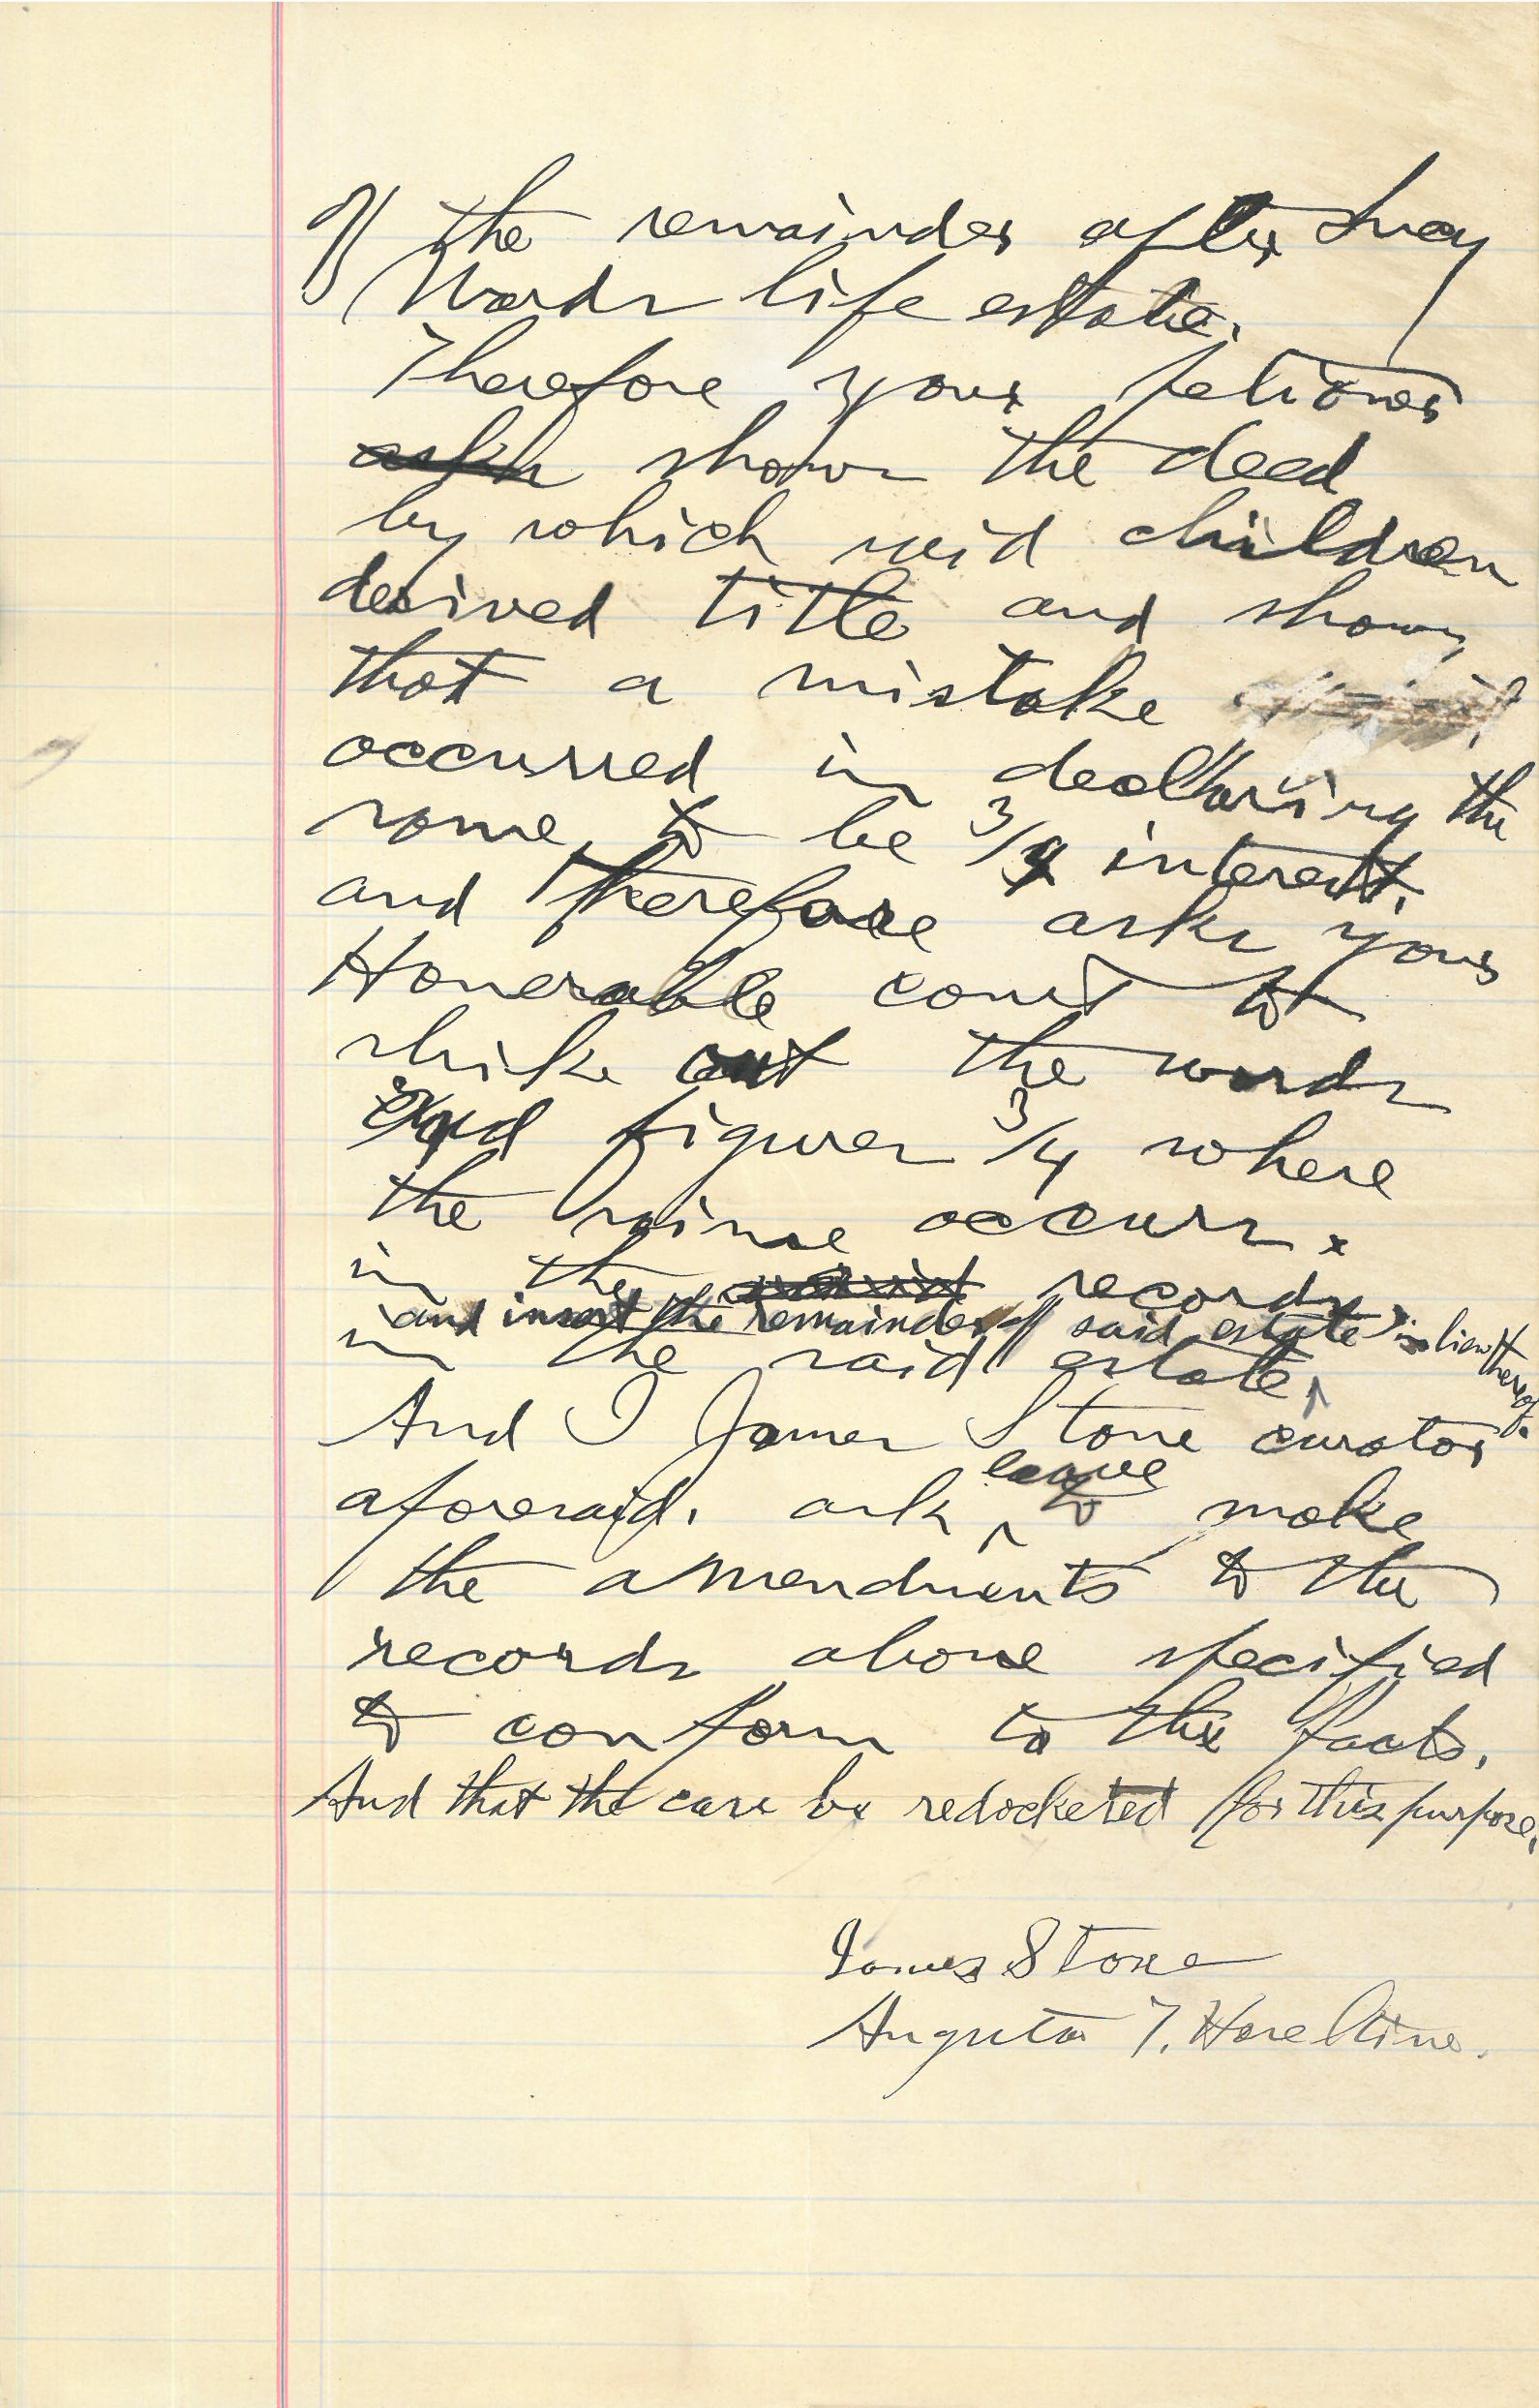 of the remainder after Lucy
Wards life estate.
Therefore your petioner
asks shows the deed
by which said children
derived title and shows
that a mistake
occurred in declaring the
same to be 3/4 interest.
and therefore asks your
Honerable court to
strike out the words
and figures 3/4 where
the same occurs.
in the records
and insert the remainder of said estate in lieu thereof.
in the said estate ^
And I James Stone curator
leave
aforesaid. ask ^ to make
the amendments to the
records above specified
to conform to the facts.
And that the case be redocketed for this purpose.
James Stone
Augusta T. Hazeltine.